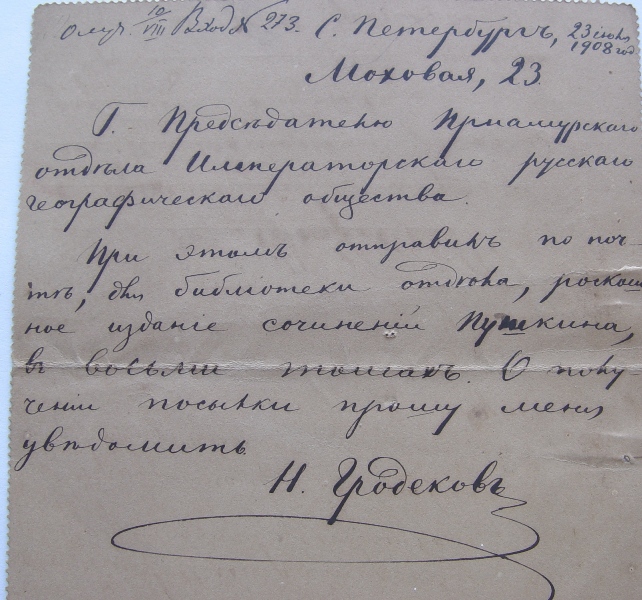 Получ. 10/VIII Вход № 273. С. Петербургъ, 23 іюня
1908 год
Моховая, 23.
Г. Предсѣдателю Приамурскаго
отдѣла Императорскаго русскаго
географическаго общества.
При этомъ отправилъ по поч-
тѣ, для библіотеки отдѣла, роскош
ное изданіе сочиненій Пушкина,
въ восьми томахъ. О полу
ченіи посылки прошу меня
увѣдомить
Н. Гродековъ